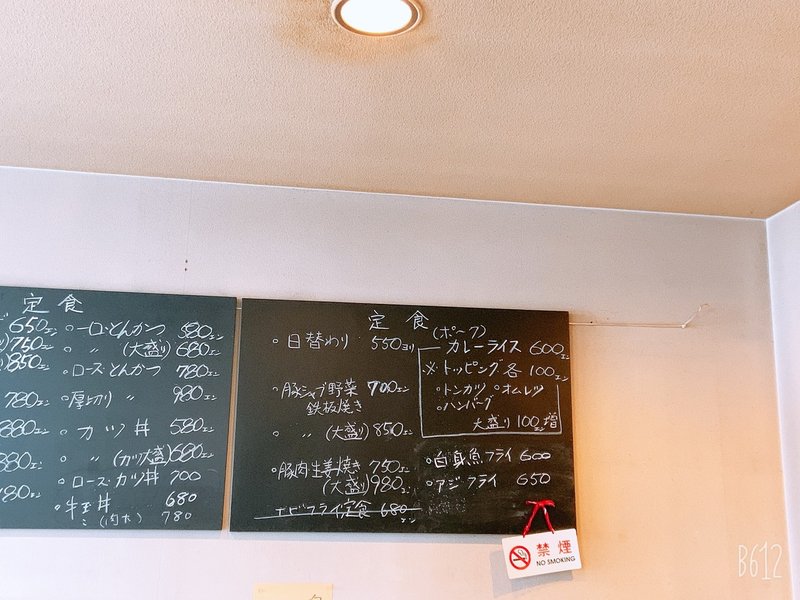 定食
650エン 一口とんかつ 580エン
750エン 〃 (大盛り) 680エン
850エン ロースとんかつ 780エン
780エン 厚切り 〃 980エン
880エン カツ丼 580エン
880エン 〃 (カツ大盛) 680エン
ロースカツ丼 700
780エン 牛玉丼 680
〃 (肉大) 780
定食
日替わり 550ヨリ
豚シャブ野菜 700エン
鉄板焼き
〃 (大盛り) 850エン
豚肉生姜焼き 750エン
(大盛り) 980エン
エビフライ定食 680エン
(ポーク)
カレーライス 600エン
※トッピング各100エン
トンカツ オムレツ
ハンバーグ
大盛り 100エン増
白身魚フライ 600
アジフライ 650
禁煙
NO SMOKING
B612